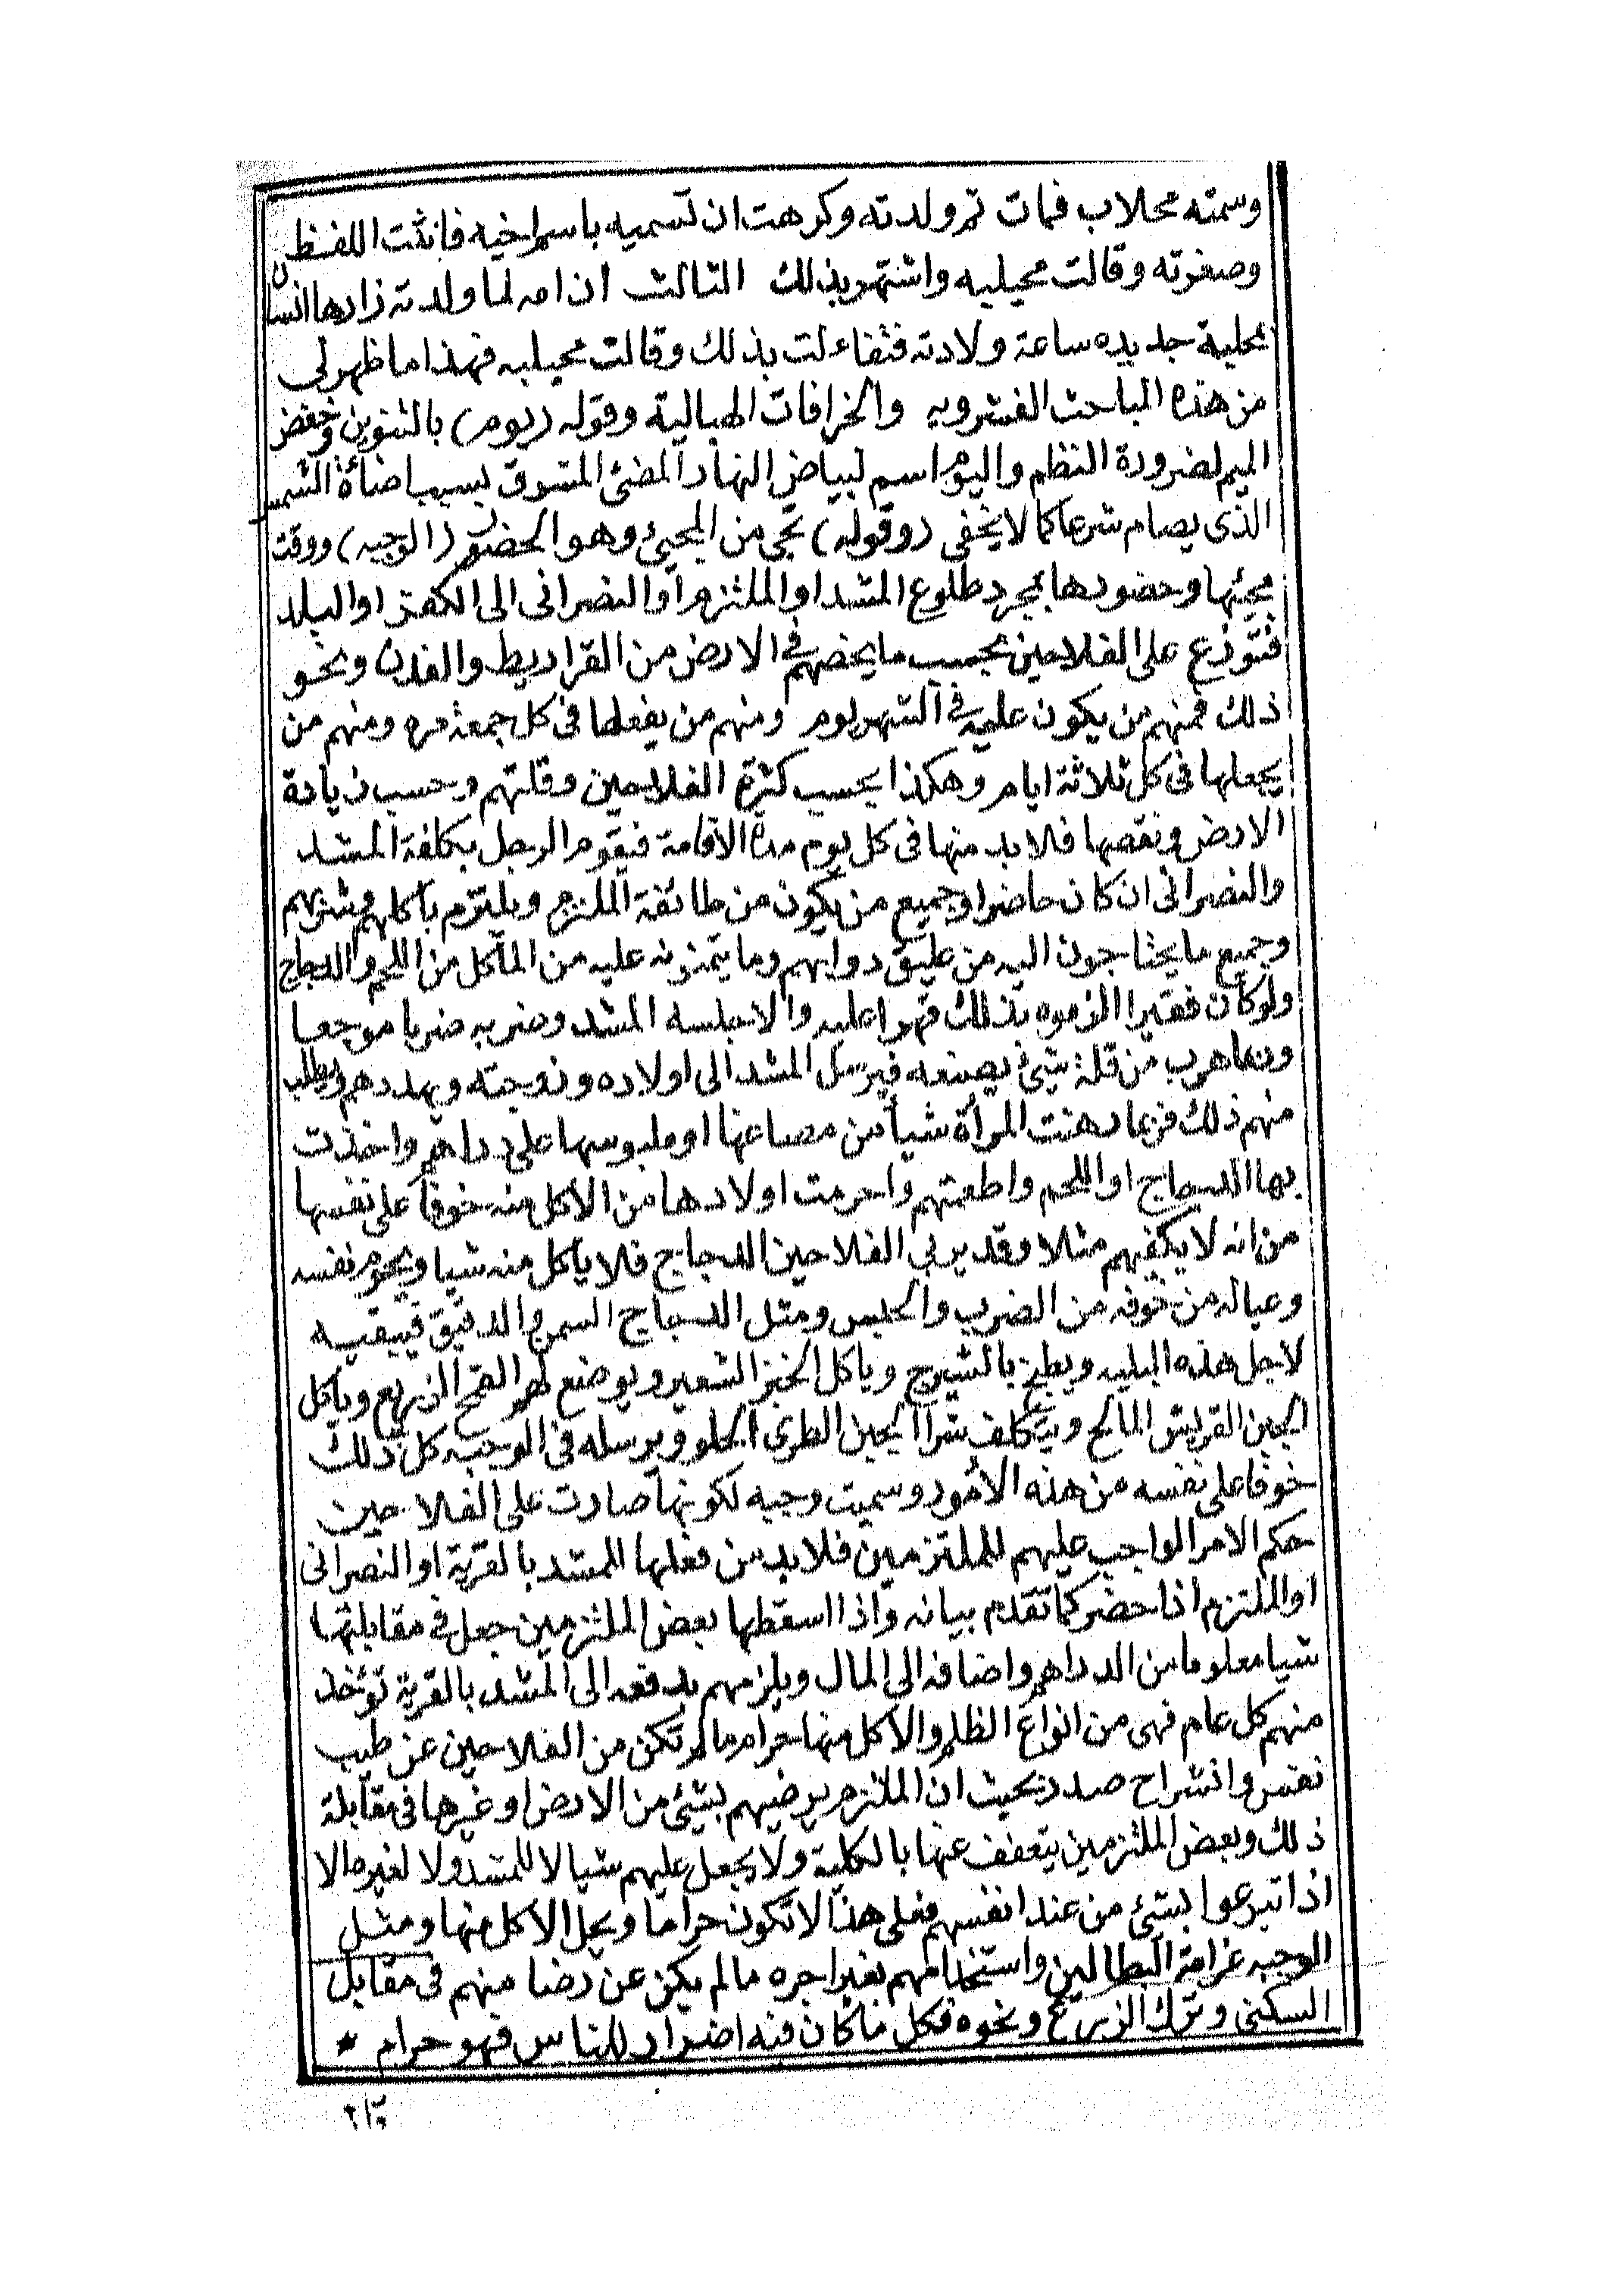 وسمته محلاب فمات ثم ولدته وكرهت ان تسميه باسم اخيه فانثت اللفظ
وصغرته وقالت محيلبه واشتهر بذلك الثالث ان امه لما ولدته زارها انسان
بحلبة جديده ساعة ولادته فتفاءلت بذلك وقالت محيلبه فهذا ما ظهر لي
من هذه المباحث الفشرويه والخرافات الهباليه وقوله (يوم) بالتنوين وخفض
الميم لضرورة النظم واليوم اسم لبياض النهار المضئ المشرق بسبب اضاءة الشمس
الذى يصام شرعا كما لا يخفى (وقوله) تجى من المجيئ وهو الحضور (الوجبه) ووقت
مجيئها وحضورها بمجرد طلوع المشد او الملتزم او النصرانى الى الكفر او البلد
فتوزع على الفلاحين بحسب ما يخصهم في الارض من القراريط والفدن ونحو
ذلك فمنهم من يكون عليه فى الشهر يوم ومنهم من يفعلها فى كل جمعة مره ومنهم من
يجعلها فى كل ثلاثة ايام وهكذا بحسب كثرة الفلاحين وقلتهم وحسب زيادة
الارض ونقصها فلا بد منها فى كل يوم مدة الاقامة فيقوم الرجل بكلفة المشد
والنصرانى ان كان حاضرا وجميع من يكون من طائفة الملتزم ويلتزم باكلهم وشربهم
وجميع ما يحتاجون اليه من عليق دوابهم وما يتمنونه عليه من المأكل من اللحم والدجاج
ولو كان فقيرا الزموه بذلك قهرا عليه والا حبسه المشد وضربه ضربا موجعا
وربما هرب من قلة شيئ يصنعه فيرسل المشد الى اولاده وزوجته ويهددهم ويطلب
منهم ذلك فربما رهنت المرأة شيأ من مصاغها او ملبوسها على دراهم واخذت
بها الدجاج او اللحم واطعمتهم واحرمت اولادها من الاكل منه خوفا على نفسها
من انه لا يكفيهم مثلا وقد يربي الفلاحين الدجاج فلا يأكل منه شيا ويحرم نفسه
وعياله من خوفه من الضرب والحبس ومثل الدجاج السمن والدقيق فيبقيه
لاجل هذه البليه ويطبخ بالشيرج وياكل الخبز الشعير ويوضع لهم القمح الزريع وياكل
الجبن القريش المالح ويتكلف شرا الجبن الطرى الحلو ويرسله فى الوجبه كل ذلك
خوفا على نفسه من هذه الامور وسميت وجبه لكونها صارت على الفلاحين
حكم الامر الواجب عليهم للملتزمين فلا بد من فعلها للمشد بالقرية او النصرانى
او الملتزم اذا حضر كما تقدم بيانه واذا اسقطها بعض الملتزمين جعل في مقابلتها
شيا معلوما من الدراهم واضافه الى المال ويلزمهم بدفعه الى المشد بالقرية تؤخذ
منهم كل عام فهى من انواع الظلم والاكل منها حرام مالم تكن من الفلاحين عن طيب
نفس وانشراح صدر بحيث ان الملتزم يرضيهم بشيئ من الارض او غيرها فى مقابلة
ذلك وبعض الملتزمين يتعفف عنها بالكلية ولا يجعل عليهم شيا لا للمشد ولا لغيره الا
اذا تبرعوا بشئ من عند انفسهم فعلى هذا لا تكون حراما ويحل الاكل منها ومثل
الوجبه غرامة البطالين واستخدامهم بغير اجره مالم يكن عن رضا منهم فى مقابل
السكنى وترك الزرع ونحوه فكل ما كان فيه اضرار للناس فهو حرام *